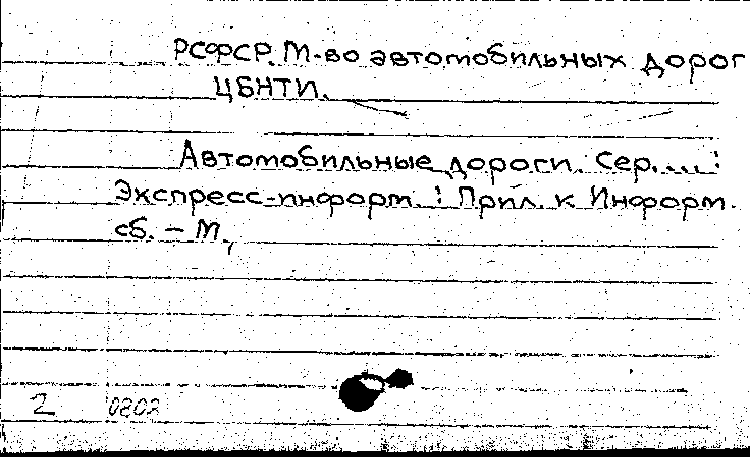 РСФСР. М-во автомобильных дорог
ЦБНТИ.
Автомобильные дороги. Сер.... :
Экспресс-информ. : Прил. к Информ.
сб. – М.,
2 0802